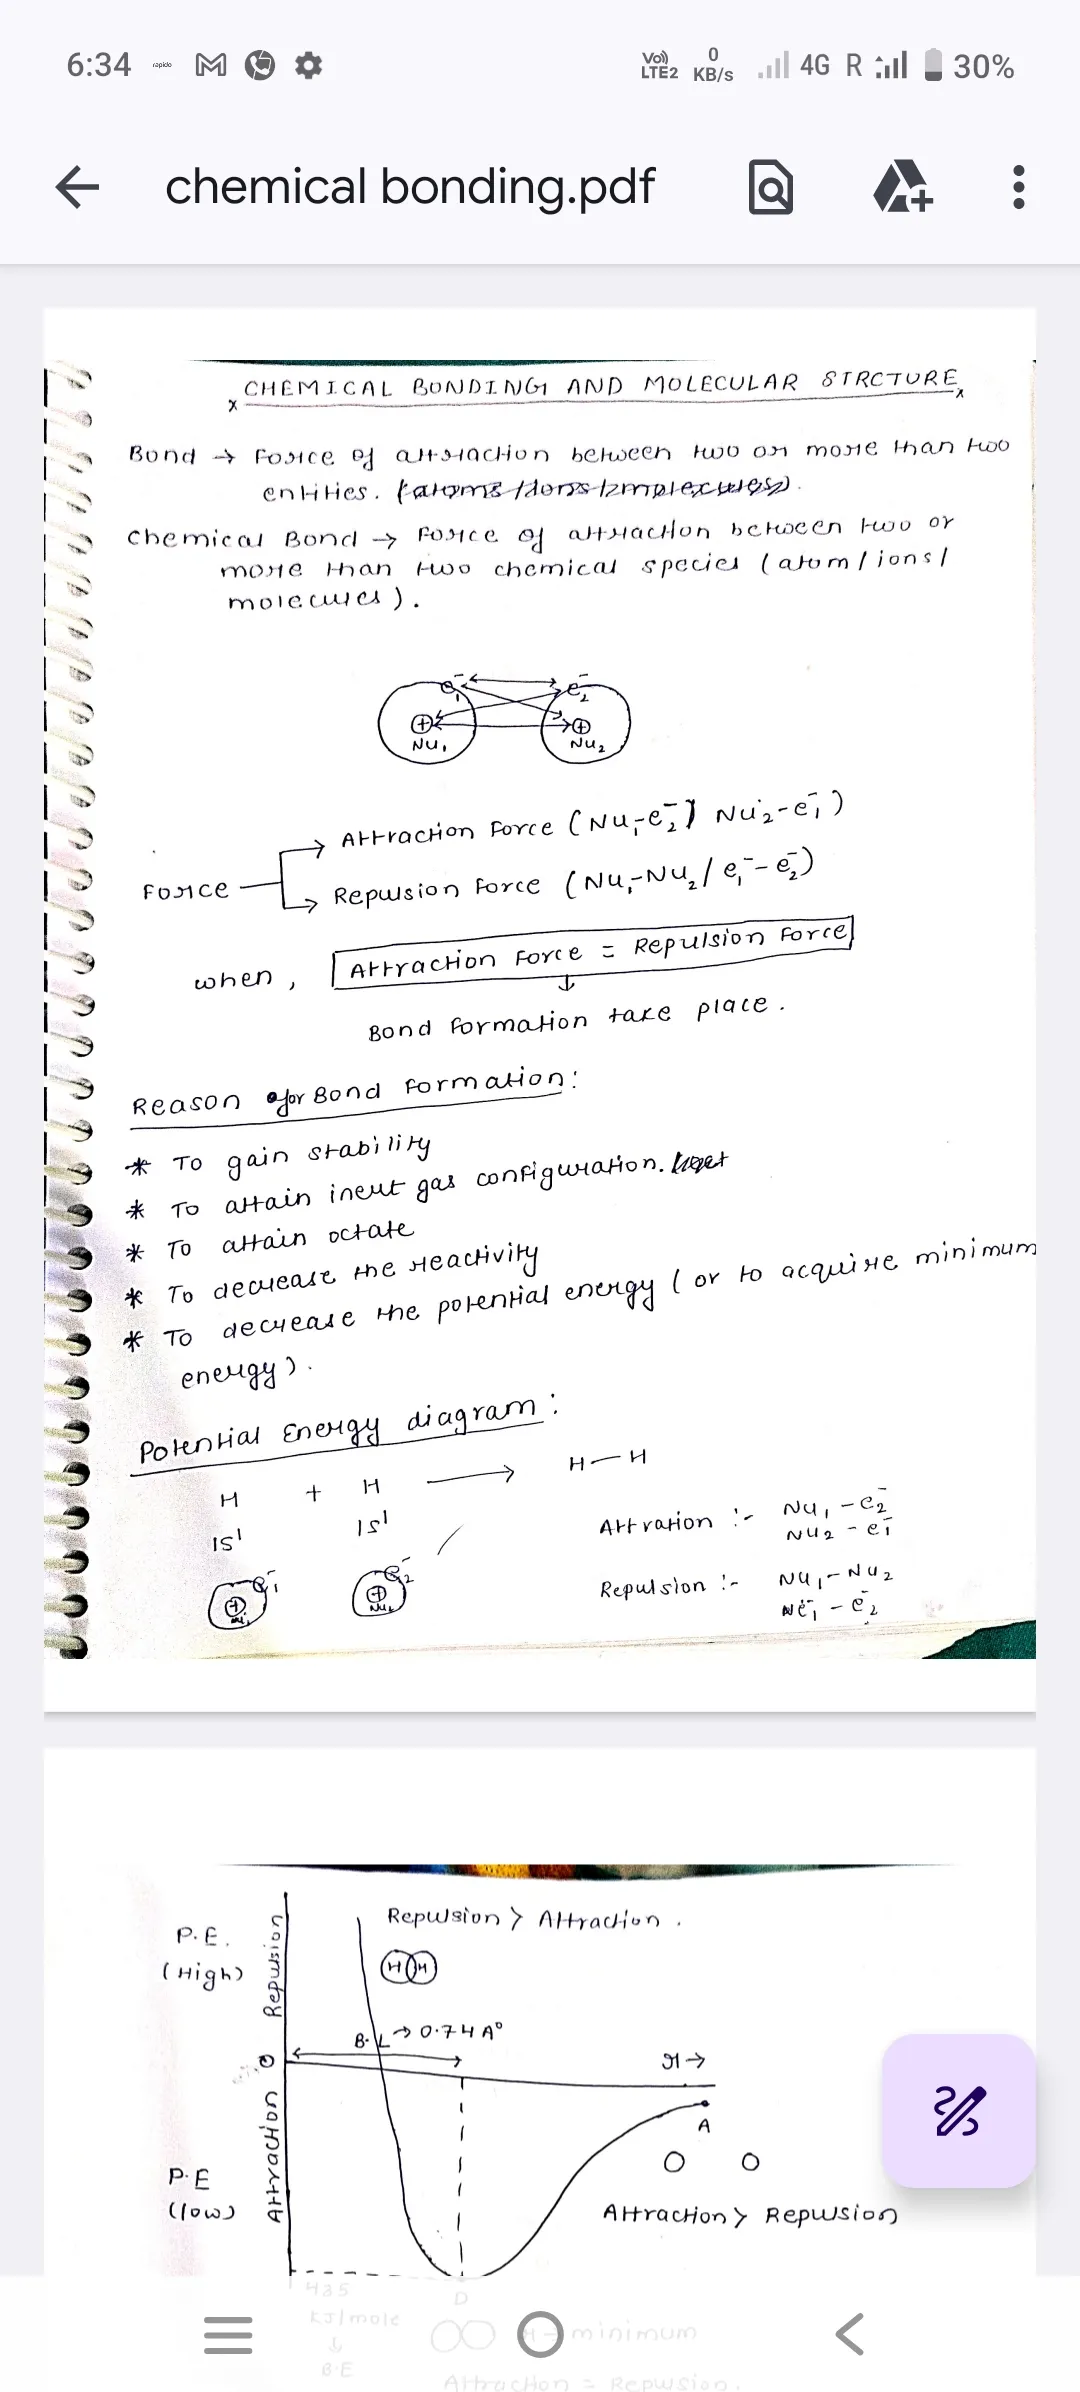 6:34 rapido Vo) LTE2 0 KB/s 4G R 30%
chemical bonding.pdf
x CHEMICAL BONDING AND MOLECULAR STRCTURE x
Bond → Force of attraction between two or more than two
entities. (atoms/ions/molecules).
Chemical Bond → Force of attraction between two or
more than two chemical species (atom/ions/
molecules).
e₁⁻ e₂⁻
⊕ ⊕
Nu₁ Nu₂
Attraction Force (Nu₁-e₂⁻) Nu₂-e₁⁻)
Force
Repulsion Force (Nu₁-Nu₂/e₁⁻-e₂⁻)
when, Attraction Force = Repulsion Force
↓
Bond formation take place.
Reason for Bond formation:
* To gain stability
* To attain inert gas configuration.
* To attain octate
* To decrease the reactivity
* To decrease the potential energy (or to acquire minimum
energy).
Potential Energy diagram:
H + H → H—H
1s¹ 1s¹
Attration :- Nu₁-e₂⁻
Nu₂-e₁⁻
e₁⁻ e₂⁻
⊕ ⊕
Nu₁ Nu₂
Repulsion :- Nu₁-Nu₂
e₁⁻-e₂⁻
Repulsion > Attraction.
P.E.
(High)
Repulsion
H H
B.L → 0.74 A°
0
r →
A
Attraction
P.E
(low)
Attraction > Repulsion
435
KJ/mole
↓
B.E
D
minimum
Attraction = Repulsion.